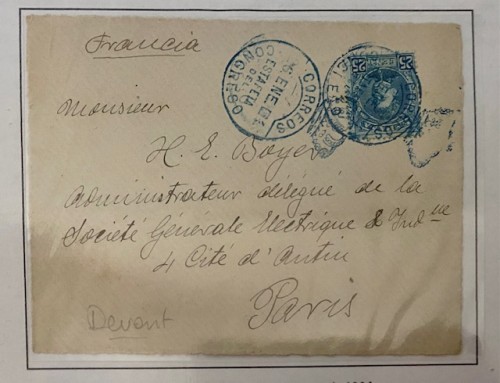 Francia
CORREOS
16 ENE 04
ESTAFETA
DEL
CONGRESO
25 25
CORREOS
Monsieur
H. E. Boyer
Administrateur délégué de la
Société Générale Electrique & Ind.lle
4 Cité d'Antin
Paris
Devant